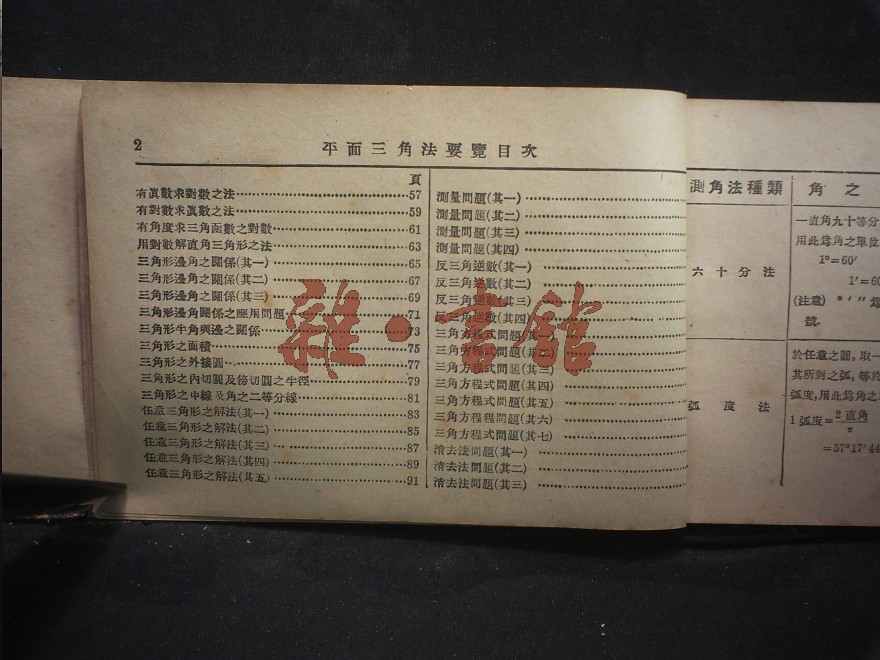 2
平面三角法要覽目次
頁
有眞數求對數之法 57
有對數求眞數之法 59
有角度求三角函數之對數 61
用對數解直角三角形之法 63
三角形邊角之關係(其一) 65
三角形邊角之關係(其二) 67
三角形邊角之關係(其三) 69
三角形邊角關係之應用問題 71
三角形半角與邊之關係 73
三角形之面積 75
三角形之外接圓 77
三角形之內切圓及傍切圓之半徑 79
三角形之中線及角之二等分線 81
任意三角形之解法(其一) 83
任意三角形之解法(其二) 85
任意三角形之解法(其三) 87
任意三角形之解法(其四) 89
任意三角形之解法(其五) 91
測量問題(其一)
測量問題(其二)
測量問題(其三)
測量問題(其四)
反三角逆數(其一)
反三角逆數(其二)
反三角逆數(其三)
反三角逆數(其四)
三角方程式問題(其一)
三角方程式問題(其二)
三角方程式問題(其三)
三角方程式問題(其四)
三角方程式問題(其五)
三角方程程問題(其六)
三角方程式問題(其七)
消去法問題(其一)
消去法問題(其二)
消去法問題(其三)
測角法種類
角之
六十分法
一直角九十等分
用此爲角之單位
1°=60′
1′=60
(注意) ° ′ ″ 爲
號.
弧度法
於任意之圓,取一
其所對之弧,等於
弧度,用此爲角之
1弧度=2直角/π
=57°17′44
雜·書館